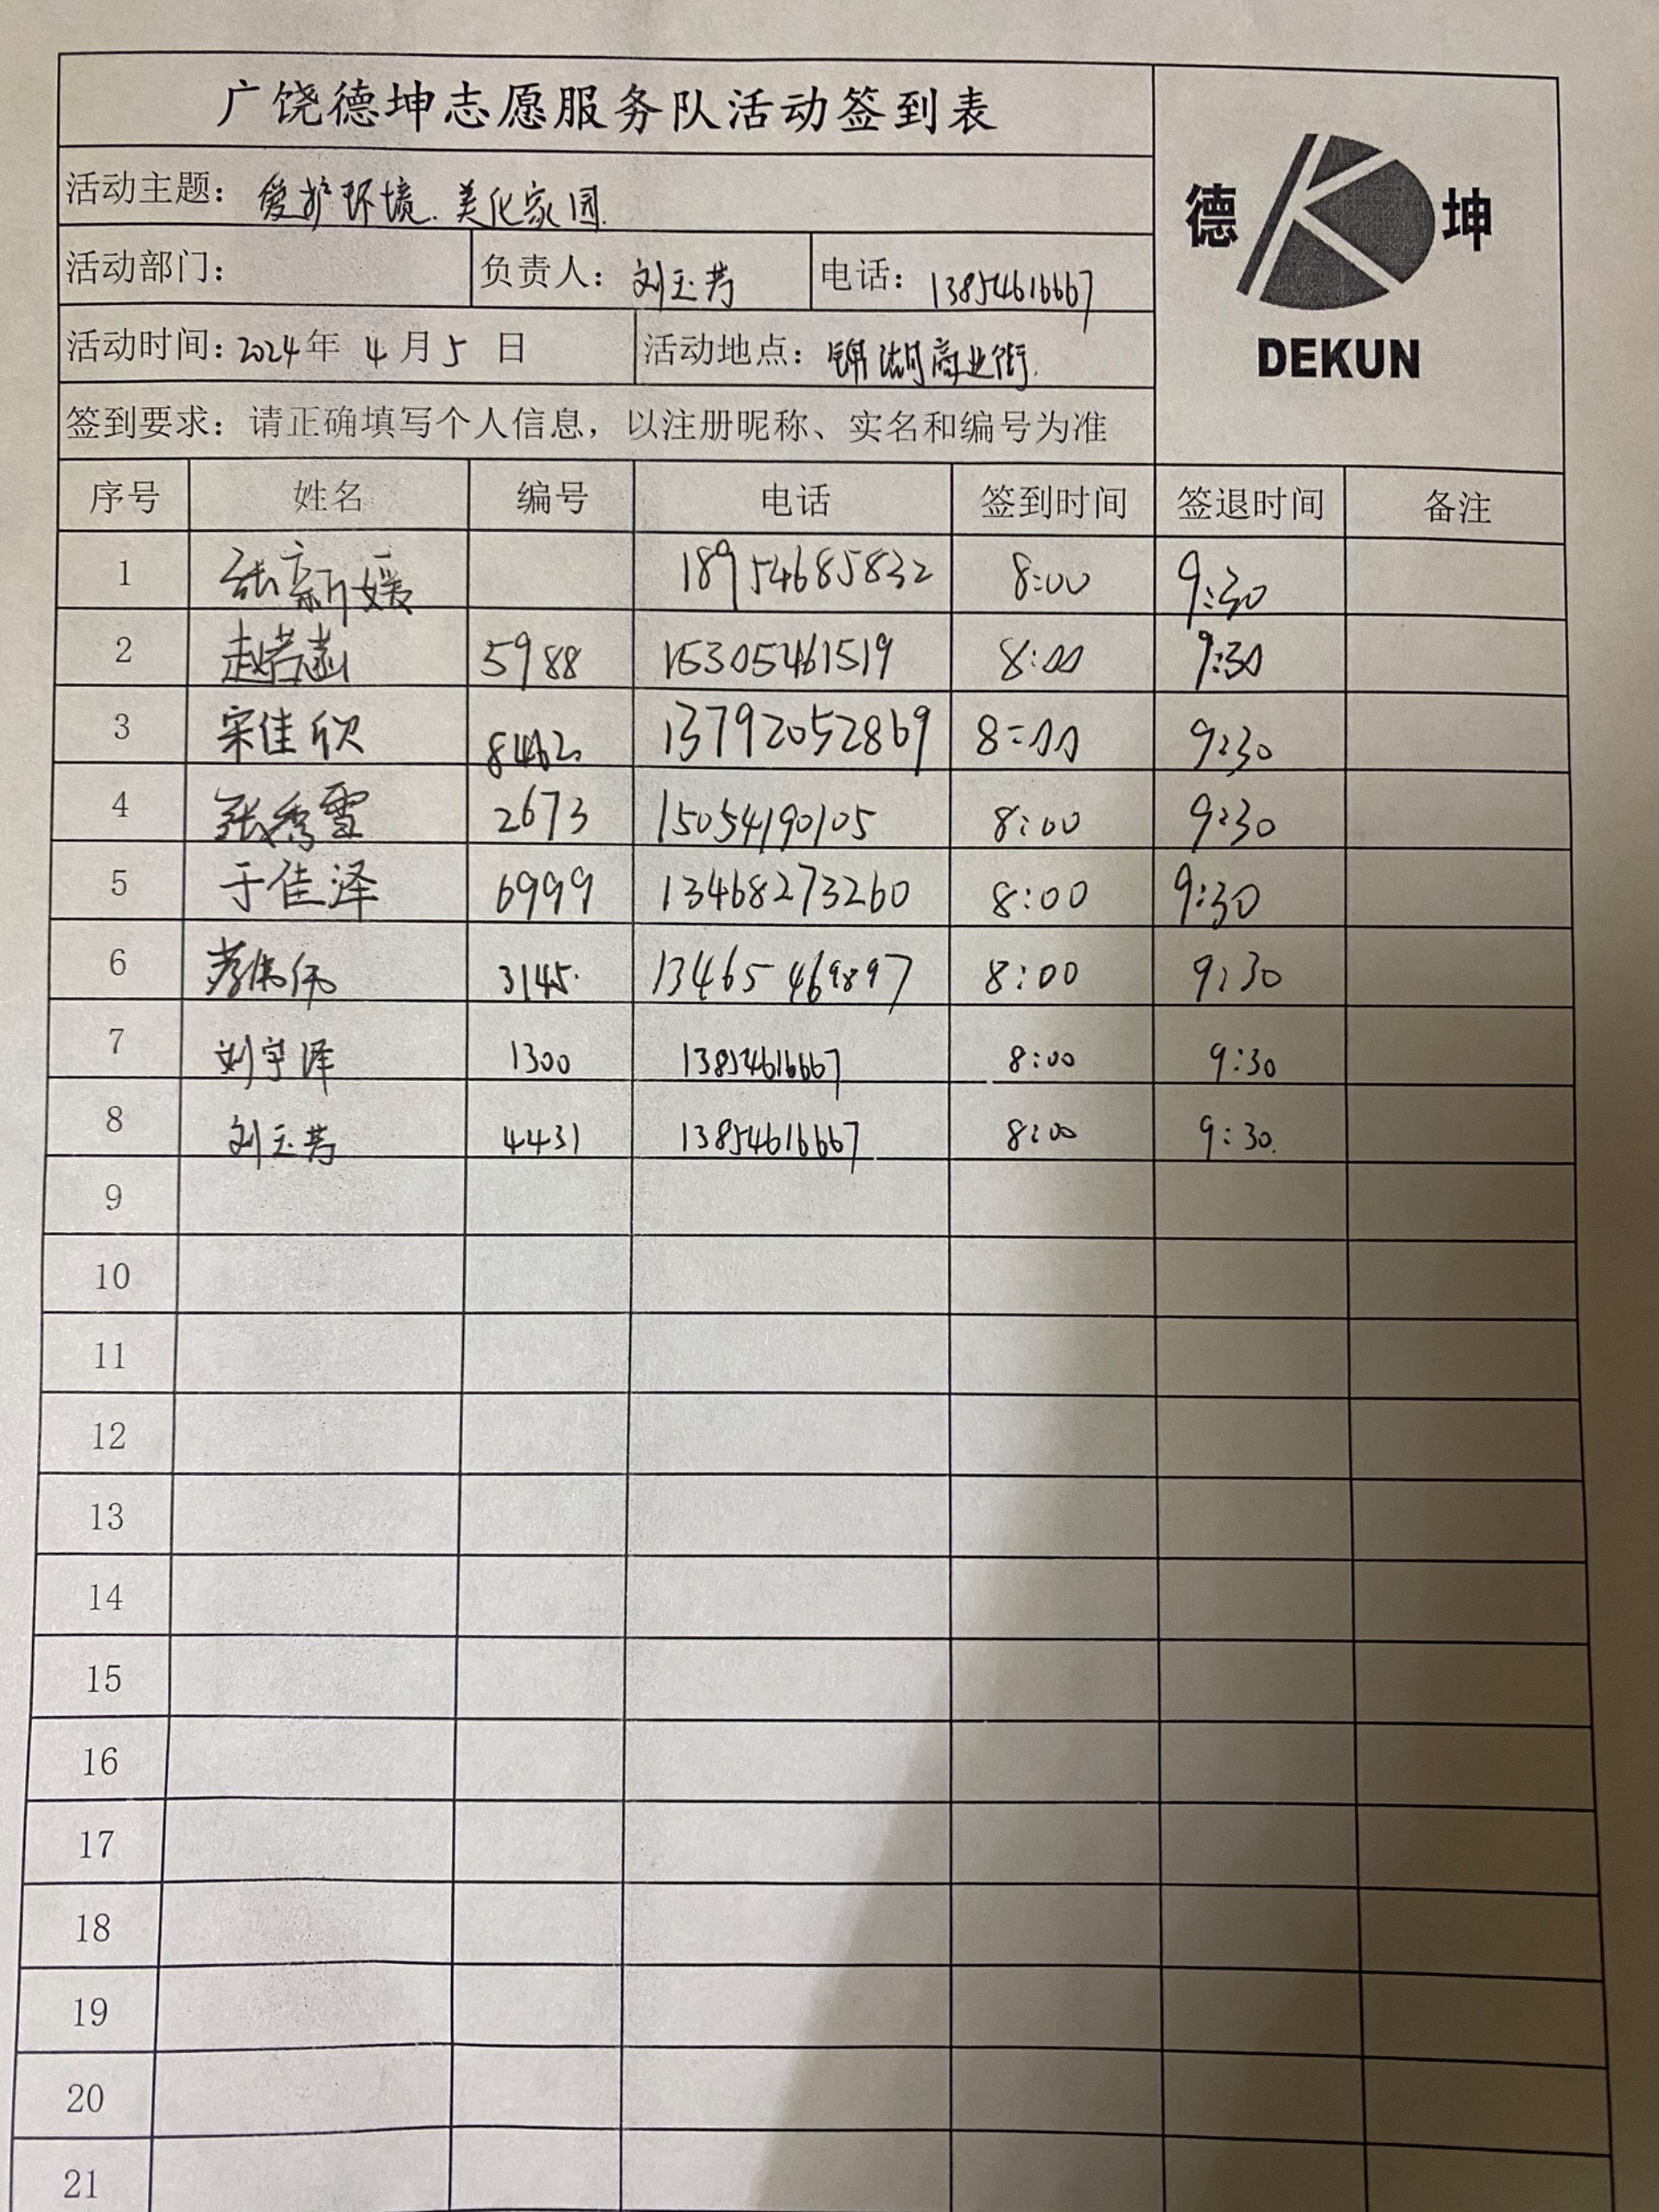 广饶德坤志愿服务队活动签到表
德 坤
DEKUN
活动主题：爱护环境.美化家园.
活动部门： 负责人：刘玉芳 电话：13854616667
活动时间：2024年 4月5 日 活动地点：锦湖商业街.
签到要求：请正确填写个人信息，以注册昵称、实名和编号为准
序号 姓名 编号 电话 签到时间 签退时间 备注
1 张新媛 18954685832 8:00 9:30
2 赵若涵 5988 15305461519 8:00 9:30
3 宋佳欣 8462 13792052869 8:00 9:30
4 张秀雪 2673 15054190105 8:00 9:30
5 于佳泽 6999 13468273260 8:00 9:30
6 3145. 13465469897 8:00 9:30
7 刘宇泽 1300 13854616667 8:00 9:30
8 刘玉芳 4431 13854616667 8:00 9:30.
9
10
11
12
13
14
15
16
17
18
19
20
21